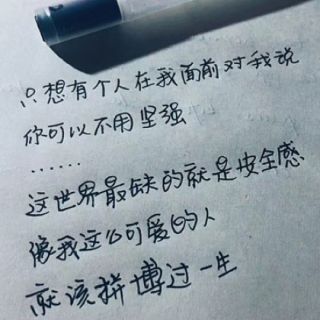 只想有个人在我面前对我说
你可以不用坚强
······
这世界最缺的就是安全感
像我这么可爱的人
就该拼博过一生